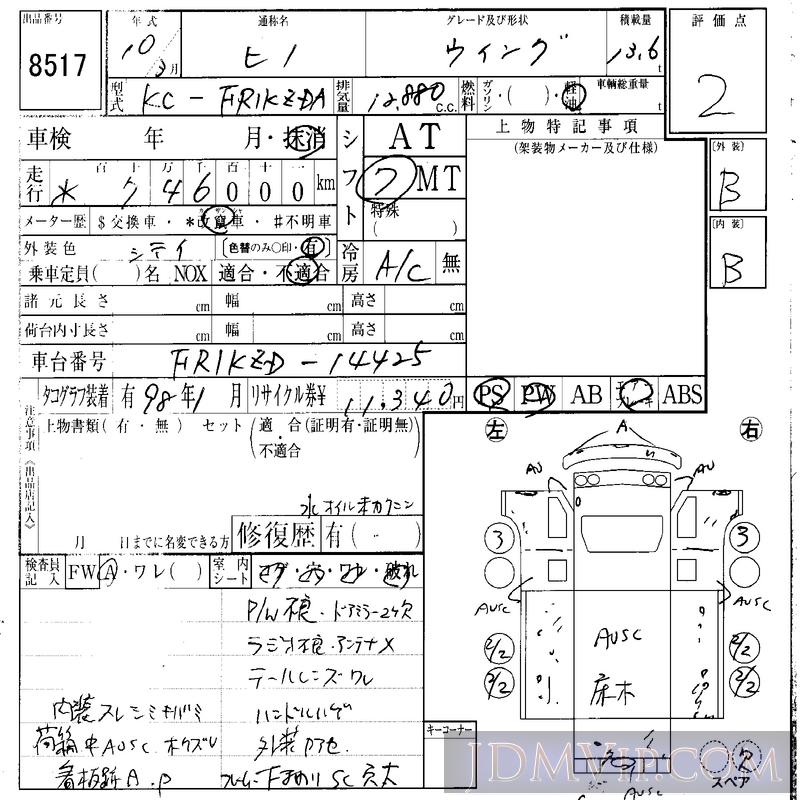 出品番号 年式 通称名 グレード及び形状 積載量 評価点
8517 10年 3月 ヒノ ウイング 13.6t 2
型式 KC-FR1KZDA 排気量 12.880c.c. 燃料 ガソリン・( )・軽油 車輌総重量 t
車検 年 月・抹消 シフト AT 上物特記事項
(架装物メーカー及び仕様)
[外装] B
走行 百十万千百十一 746000km フMT
メーター歴 $交換車・*改竄車・#不明車 特殊( )
[内装] B
外装色 シテイ [色替のみ○印・有] 冷房 A/C 無
乗車定員( )名 NOX 適合・不適合
諸元長さ cm 幅 cm 高さ cm
荷台内寸長さ cm 幅 cm 高さ cm
車台番号 FR1KZD-14425
タコグラフ装着 有 98年1月 リサイクル券¥ 11,340円 PS PW AB ABS
注意事項(出品店記入)
上物書類(有・無) セット(適合(証明有・証明無)・不適合)
左 A 右
AU AU
水オイル
月 日までに名変できる方 修復歴 有( )
3 3
検査員記入 FW A・ワレ( ) 室内シート 破れ
AUSC AUSC
P/W不良・ドアミラー
ラジオ不良・アンテナX
AUSC
2/2 2/2
テールレンズワレ
3/2 床木 2/2
内装スレシミキバミ ハンドルハゲ
荷箱中AUSC. 外装Pアセ. キーコーナー
看板跡A.P フレーム下まわりSC穴大
スペア
AUSC
JDMVIP.COM